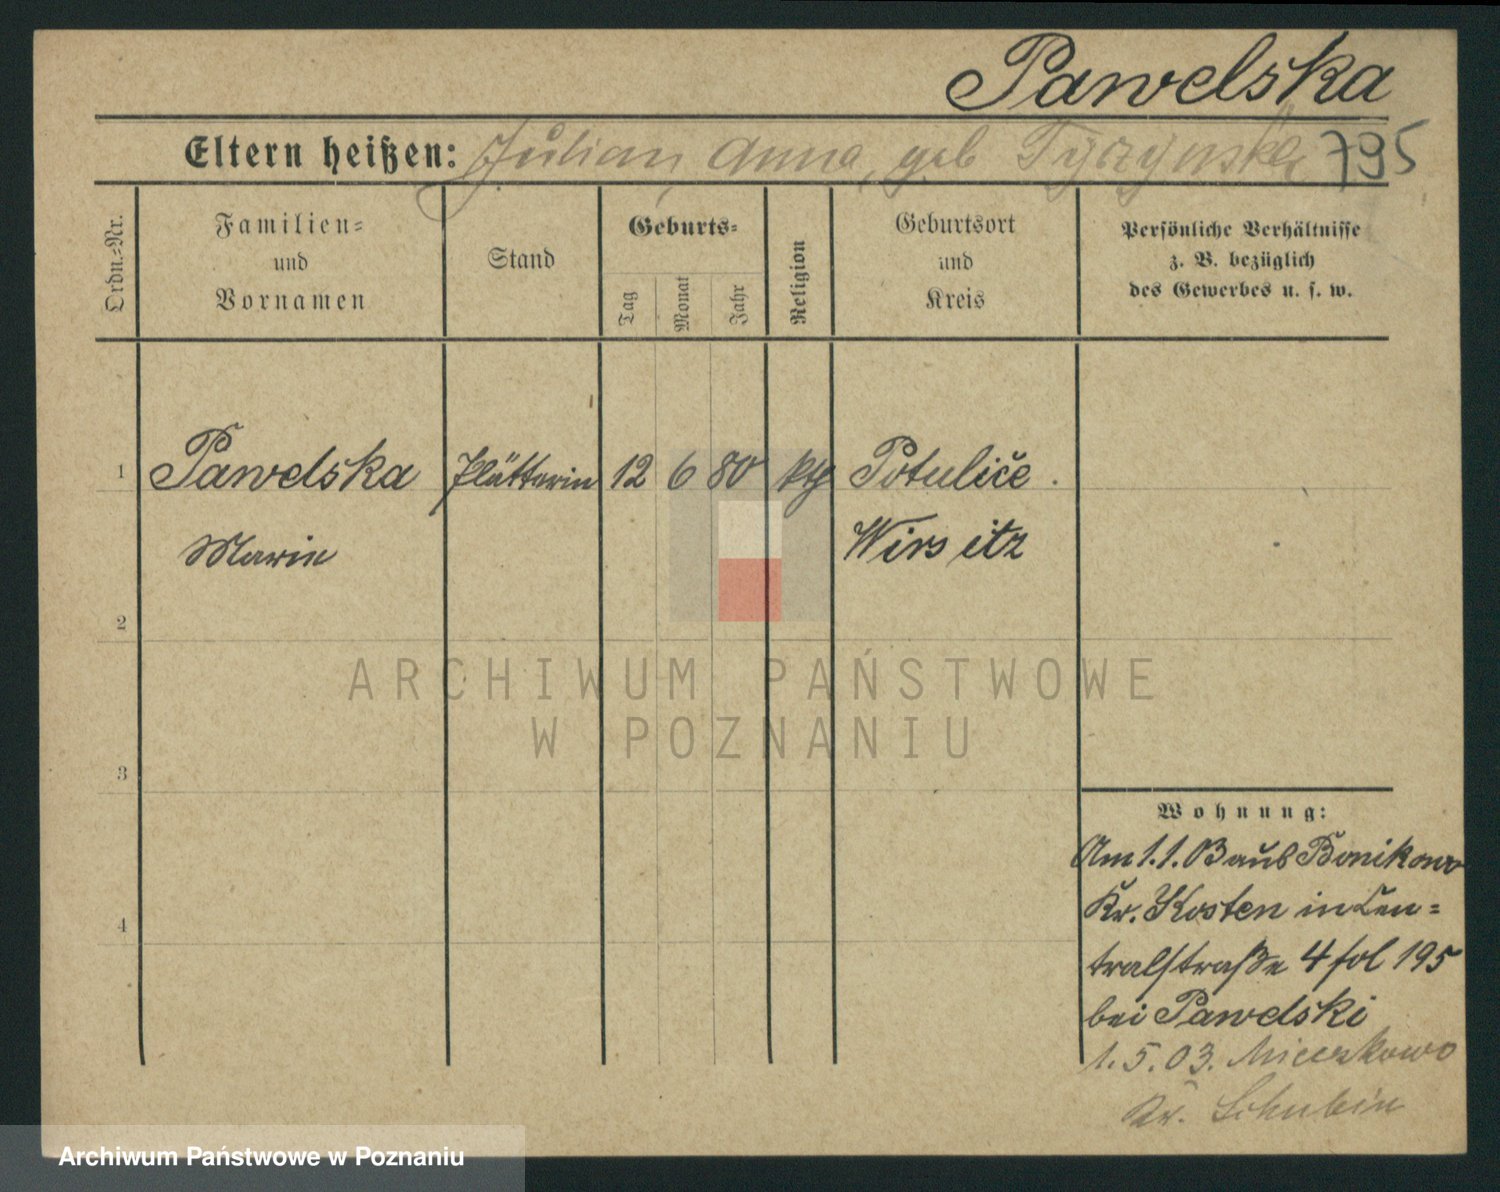 Pawelska
Eltern heißen: Julian, Anna, geb 795
Ordn.=Nr.
Familien=
und
Vornamen
Stand
Geburts=
Tag
Monat
Jahr
Religion
Geburtsort
und
Kreis
Persönliche Verhältnisse
z. B. bezüglich
des Gewerbes u. s. w.
1 Pawelska Plätterin 12 6 80 kth Potulice.
Marie Wirsitz
2
3
4
Wohnung:
Am 1.1.03 aus Bonikowo
Kr. Kosten in Cen=
tralstraße 4 fol 195
bei Pawelski
1.5.03. Mieczkowo
Kr. Schubin
ARCHIWUM PAŃSTWOWE
W POZNANIU
Archiwum Państwowe w Poznaniu